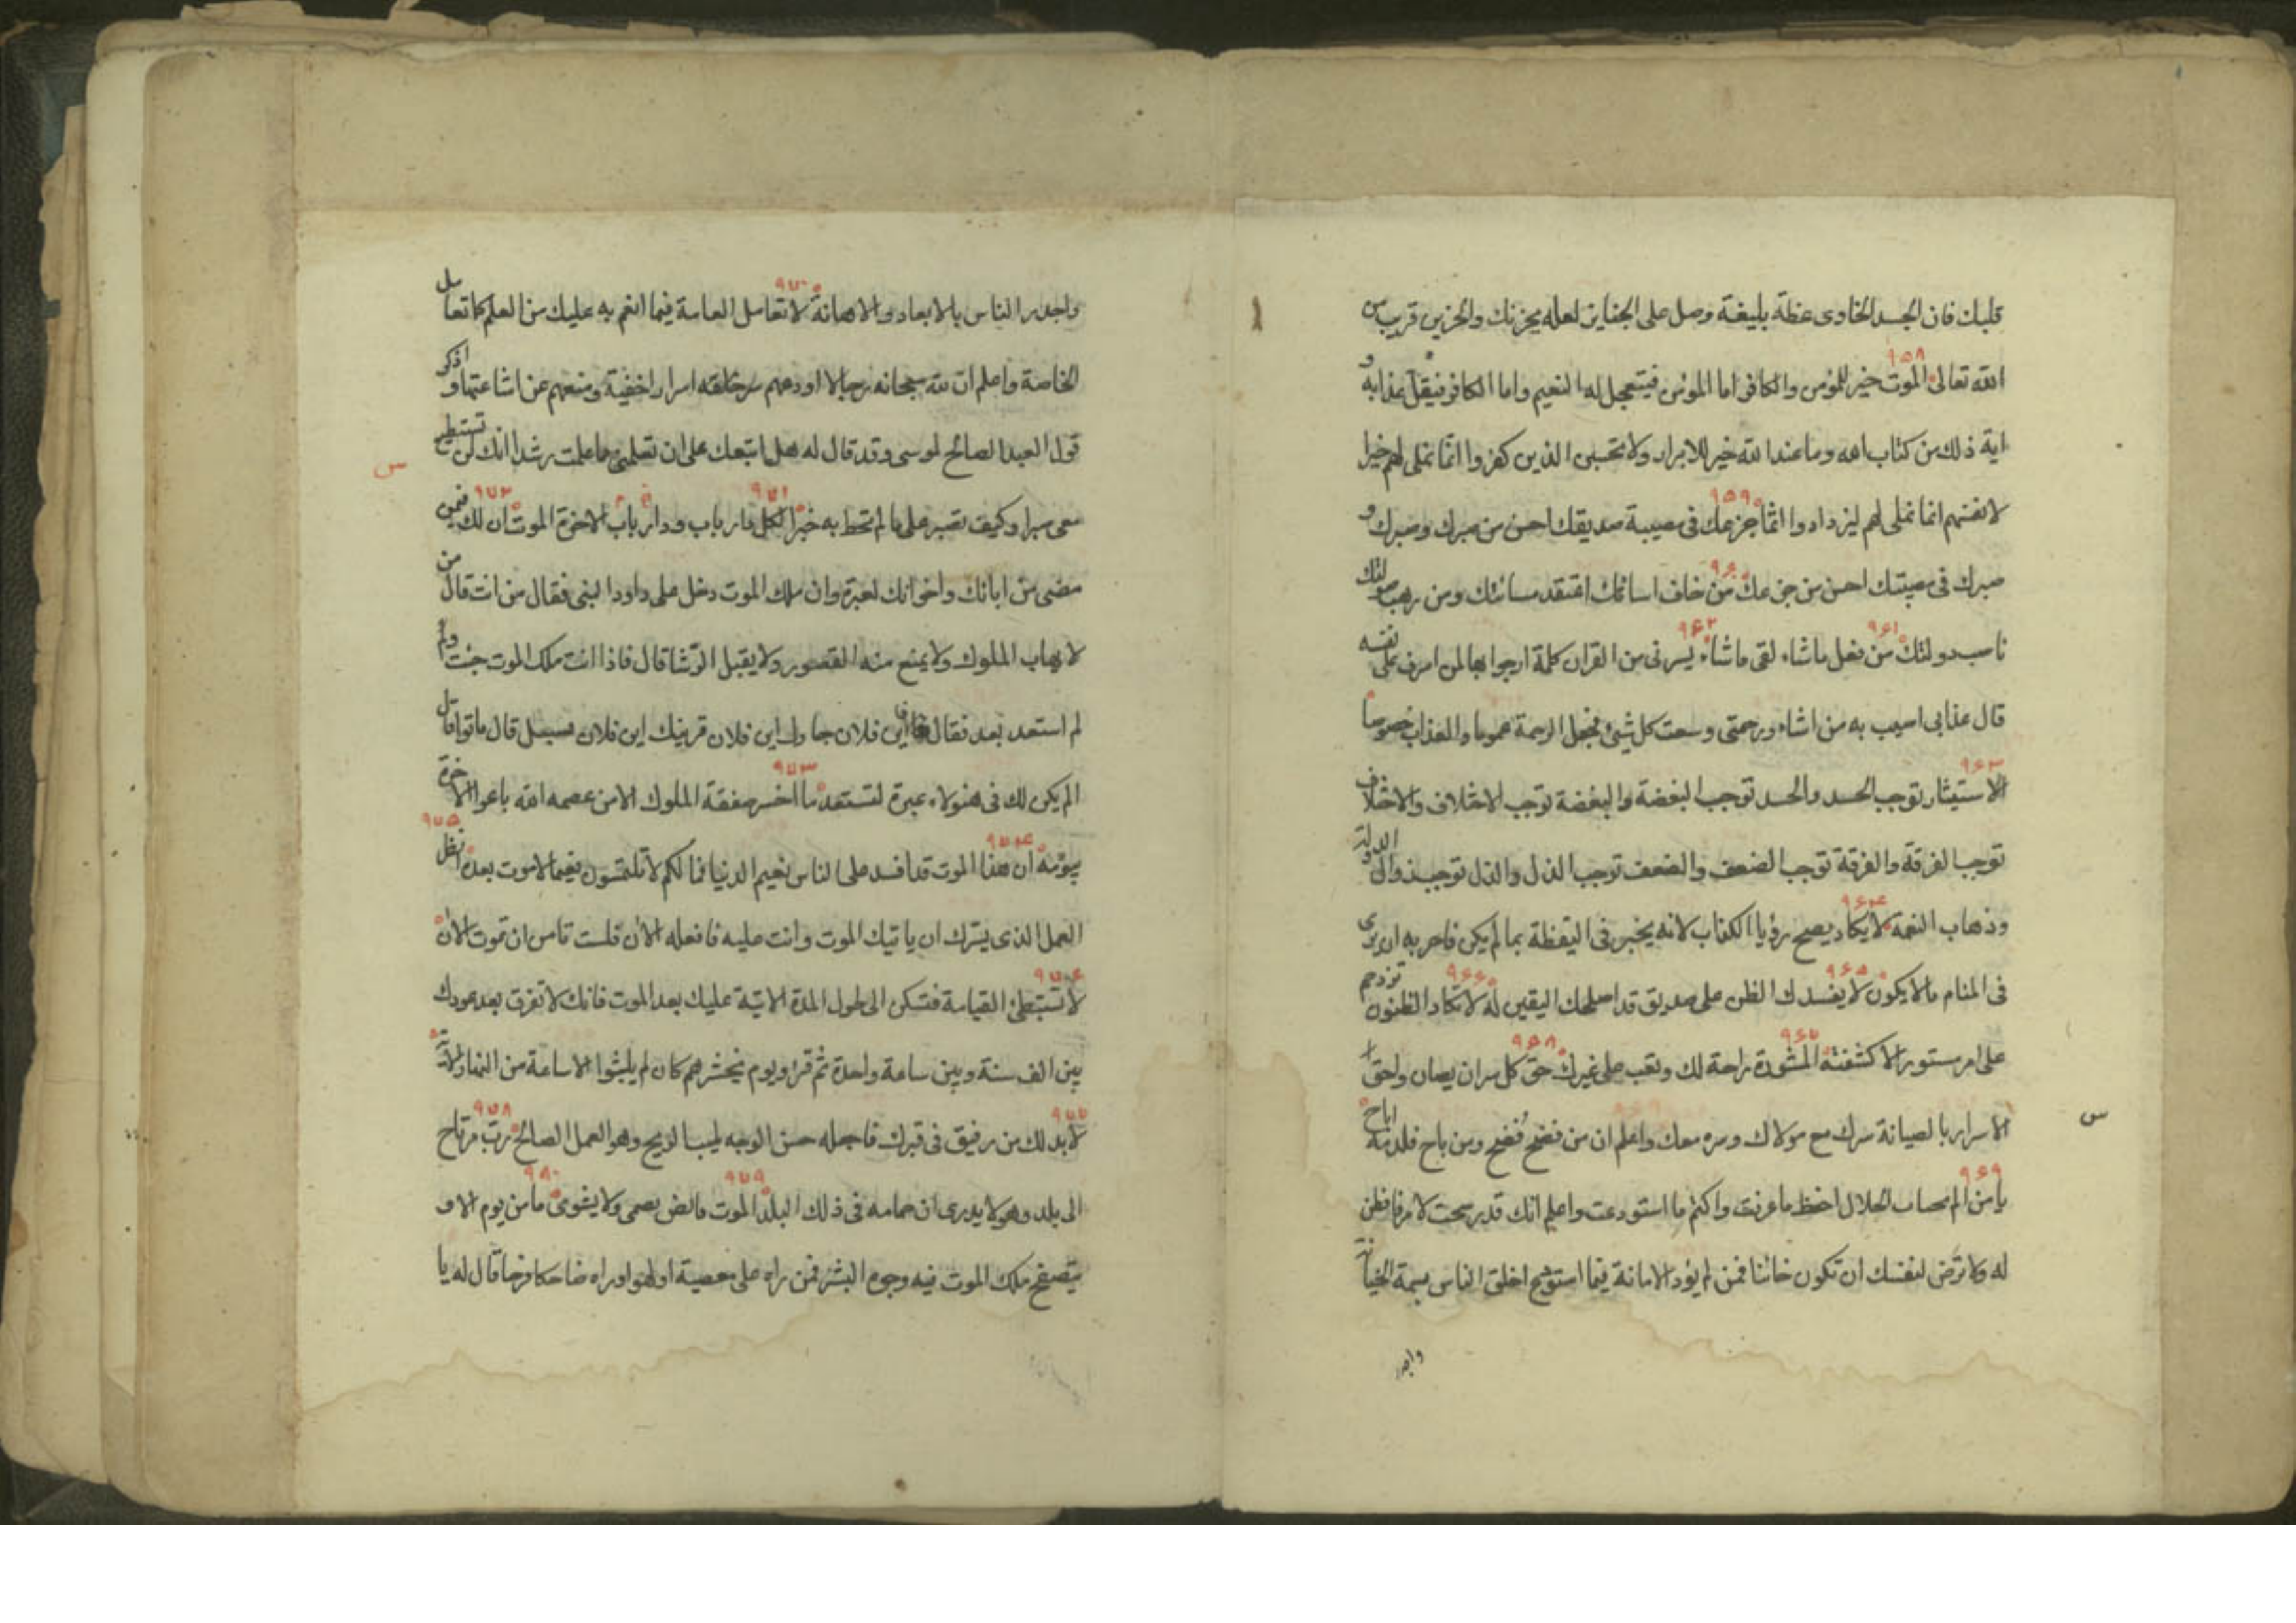 قلبك فان الجسد الخاوى عظة بليغة وصل على الجنايز لعله يحزنك والحزين قريب من
٩٥٨
الله تعالى الموت خير للمؤمن والكافر اما المؤمن فيتعجل له النعيم واما الكافر فيقل عذابه و
اية ذلك من كتاب الله وما عند الله خير للابرار ولا تحسبن الذين كفروا انما نملى لهم خيرا
٩٥٩
لانفسهم انما نملى لهم ليزدادوا اثما جزعك فى مصيبة صديقك احسن من صبرك وصبرك و
٩۶٠
صبرك فى مصيبتك احسن من جزعك من خاف اسائتك اعتقد مسائتك ومن رهب صولتك
٩۶١ ٩۶٢
ناصب دولتك من فعل ماشاء لقى ماشاء يسرنى من القران كلمة ارجوا بها لمن اسرف على نفسه
قال عذابى اصيب به من اشاء ورحمتى وسعت كل شيئ فجعل الرحمة عموما والعذاب خصوصا
٩۶٣
الاستيثار توجب الحسد والحسد توجب البغضة والبغضة توجب الاختلاف والاختلاف
توجب الفرقة والفرقة توجب الضعف والضعف توجب الذل والذل توجب زوال الدولة
٩۶۴
وذهاب النعمة لا يكاد يصح رؤيا الكذاب لانه يخبر فى اليقظة بما لم يكن فاحر به ان يرى
٩۶۵ ٩۶۶
فى المنام ما لا يكون لا يفسدك الظن على صديق قد اصلحك اليقين له لا تكاد الظنون تزدحم
٩۶٧ ٩۶٨
على امر مستور الا كشفته المشورة راحة لك وتعب على غيرك حق كل سر ان يصان واحق
س
الاسرار بالصيانة سرك مع مولاك وسره معك واعلم ان من فضح فُضح ومن باح فلدمه اباح
٩۶٩
يا من الم بجناب الجلال احفظ ما عرفت واكتم ما استودعت واعلم انك قد رشحت لامر فافطن
له ولا ترض لنفسك ان تكون خائنا فمن لم يؤد الامانة فيما استودع اخلق الناس بسمة الخيانة
واجدر
٩٧٠
واجدر الناس بالابعاد والاهانة لا تعامل العامة فيما انعم به عليك من العلم كما تعامل
الخاصة واعلم ان لله سبحانه رجالا اودعهم سرخلقه اسرارا خفية ومنعهم عن اشاعتها و اذكر
قول العبد الصالح لموسى وقد قال له هل اتبعك على ان تعلمنى مما علمت رشدا انك لن تستطيع
س
٩٧١ ٩٧٢
معى صبرا وكيف تصبر على ما لم تحط به خبرا لكل دار باب وباب دار الاخرة الموت ان لك فيمن
مضى من ابائك واخوانك لعبرة وان ملك الموت دخل على داود النبى فقال من انت قال من
لا يهاب الملوك ولا يمنع منه القصور ولا يقبل الرشا قال فاذا انت ملك الموت جئت ولم
لم استعد بعد فقال فاين فلان جارك اين فلان قرينك اين فلان قال ماتوا قال
٩٧٣
الم يكن لك فى هنولاء عبرة لتستعد ما اخسر صفقة الملوك الا من عصمه الله باعوا الاخرة
٩٧۴ ٩٧۵
بنومة ان هذا الموت قد افسد على الناس نعيم الدنيا فما لكم لا تلتمسون نعيما لا موت بعده انظر
العمل الذى يسرك ان ياتيك الموت وانت عليه فافعله الان فلست تامن ان تموت الان
٩٧۶
لا تستبطئ القيامة فتسكن الى طول المدة الاتية عليك بعد الموت فانك لا تفرق بعد عودك
بين الف سنة وبين ساعة واحدة ثم قرا ويوم نحشرهم كان لم يلبثوا الا ساعة من النهار الاية
٩٧٧ ٩٧٨
لا بد لك من رفيق فى قبرك فاجعله حسن الوجه طيب الريح وهو العمل الصالح رب مرتاح
٩٧٩ ٩٨٠
الى بلد وهو لا يدرى ان حمامه فى ذلك البلد الموت قانص يصمى ولا يشوى ما من يوم الا و
يتصفح ملك الموت فيه وجوه البشر فمن راه على معصية او لهو او راه ضاحكا فرحا قال له يا